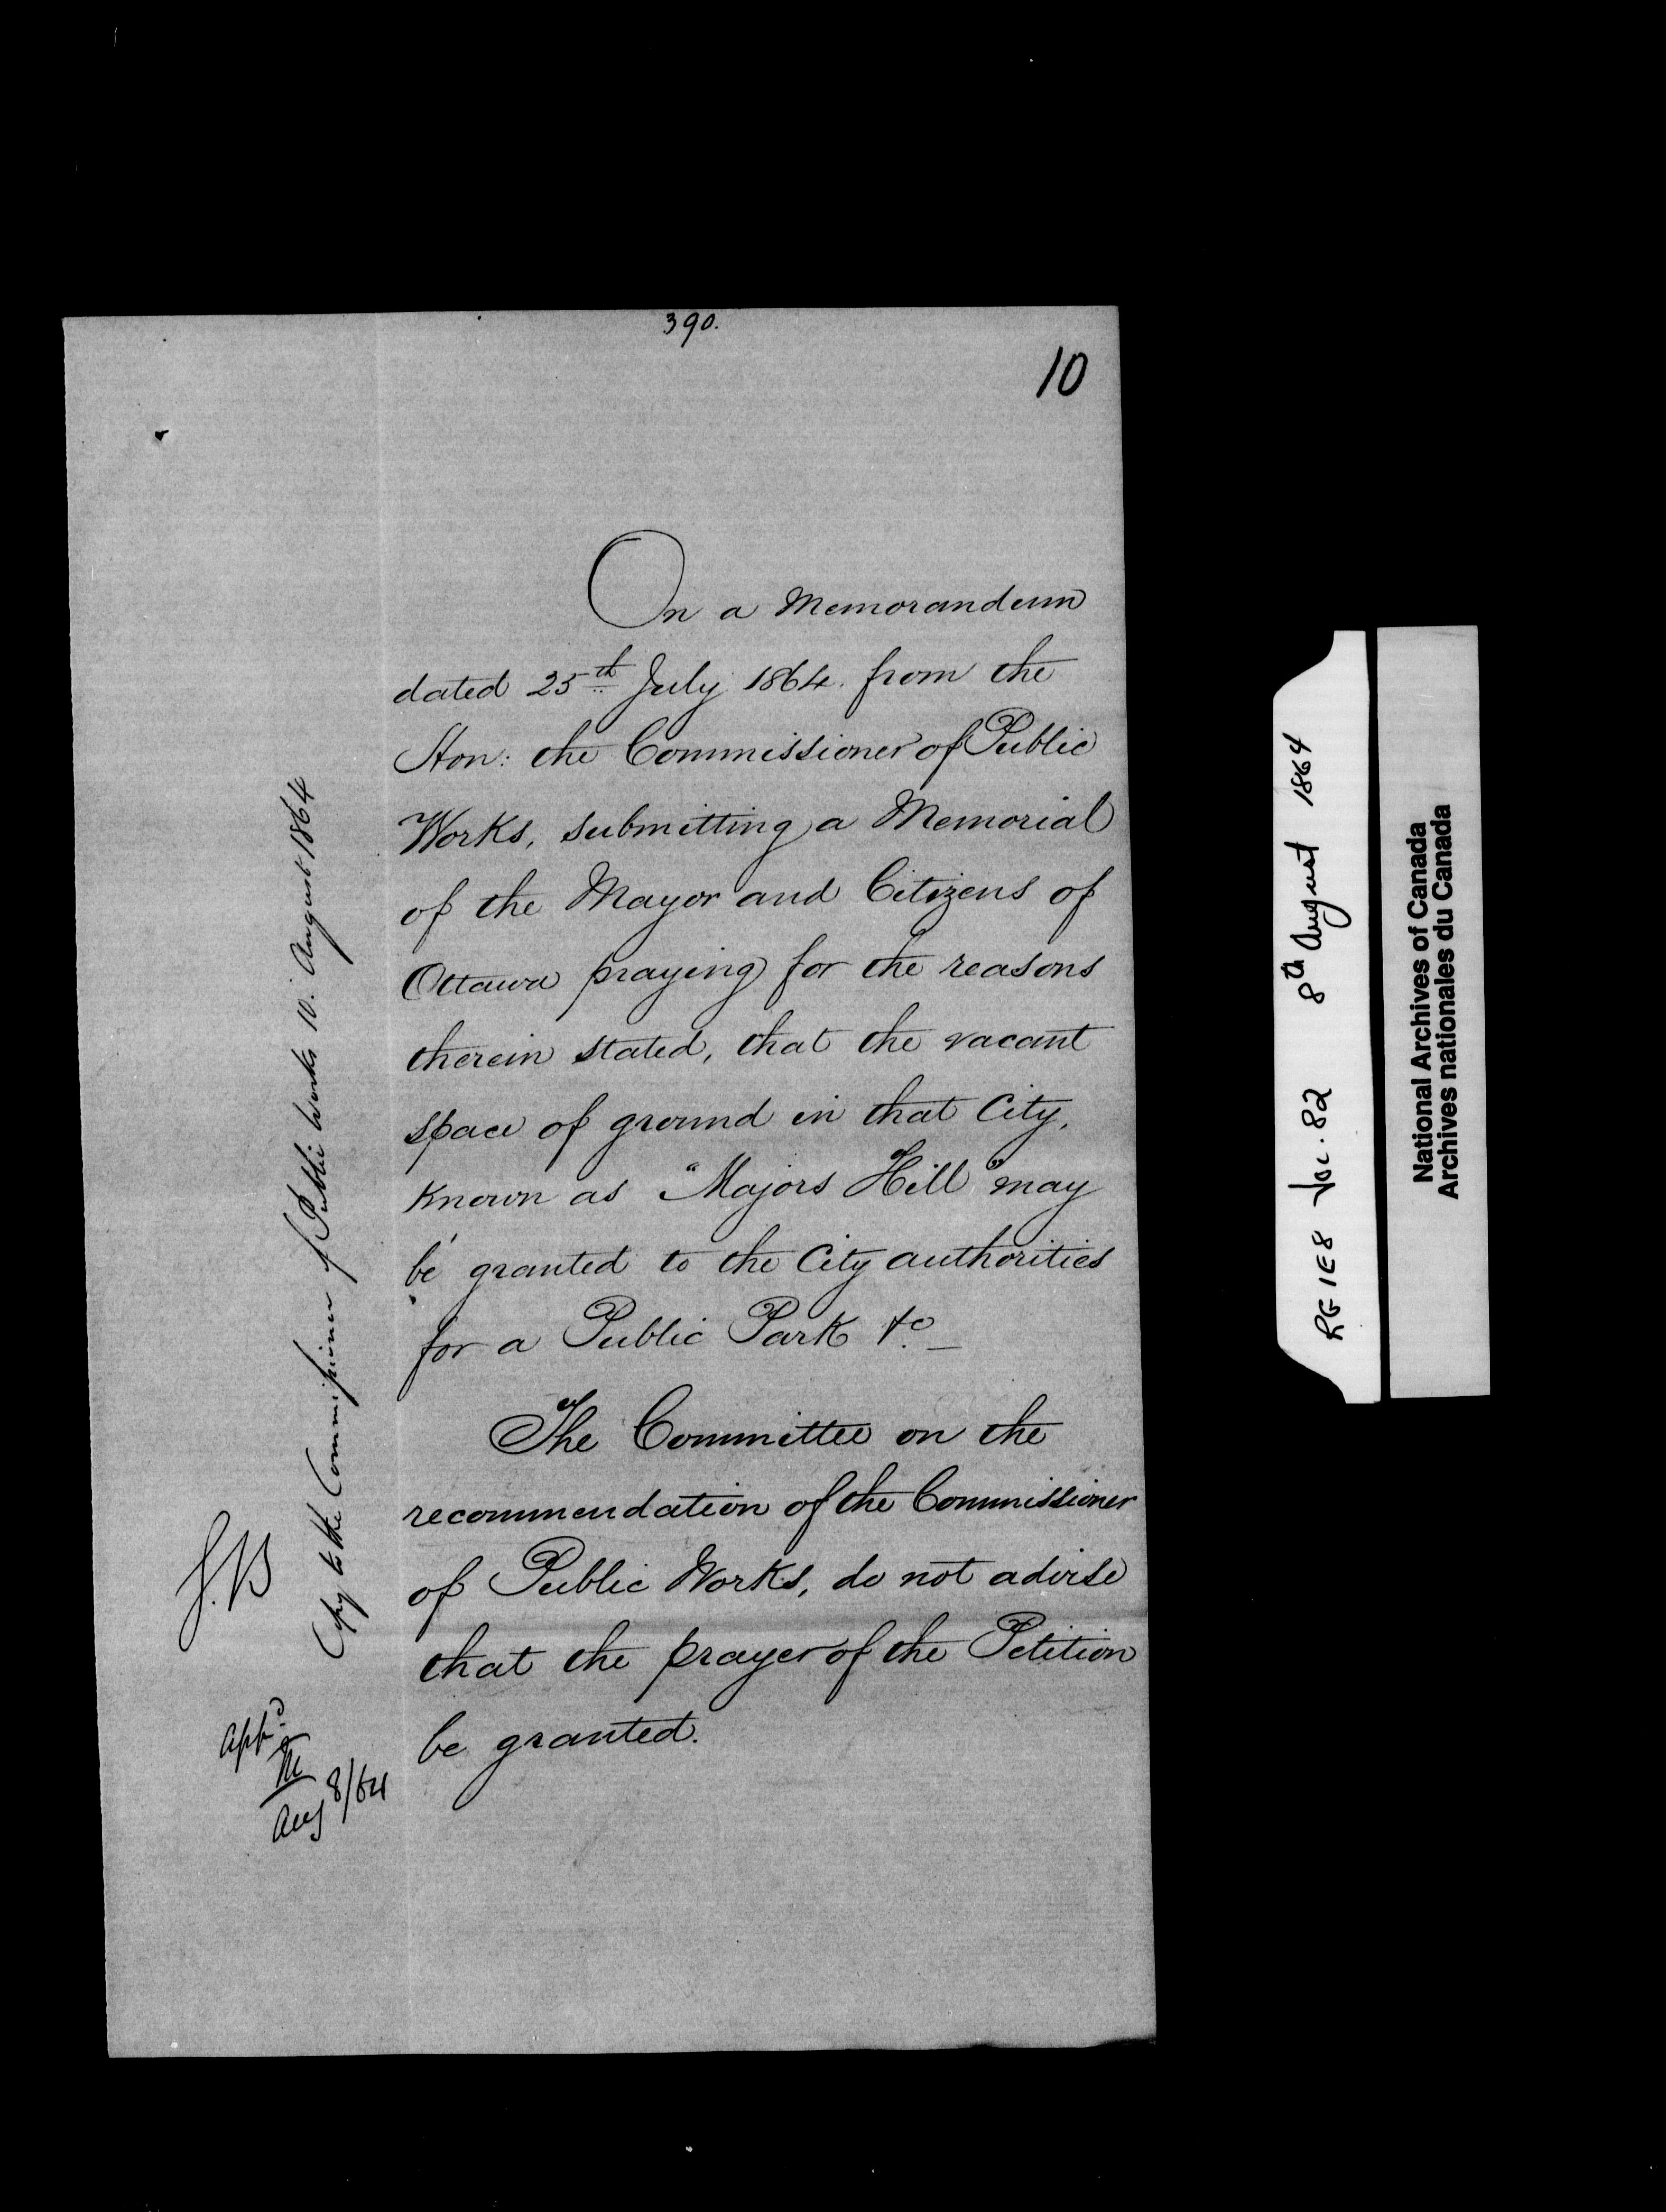 390.
10
On a Memorandum
dated 25th July 1864. from the
Hon: the Commissioner of Public
Works, submitting a Memorial
of the Mayor and Citizens of
Ottawa praying for the reasons
therein stated, that the vacant
space of ground in that City,
Known as "Majors Hill" may
be granted to the City authorities
for a Public Park &c_
The Committee on the
recommendation of the Commissioner
of Public Works, do not advise
that the prayer of the Petition
be granted.
Copy to the Commissioner of Public Works 10. August 1864
J.B
Appd
M
Aug 8/64
RG 1E8 Vol. 82 8th August 1864
National Archives of Canada
Archives nationales du Canada